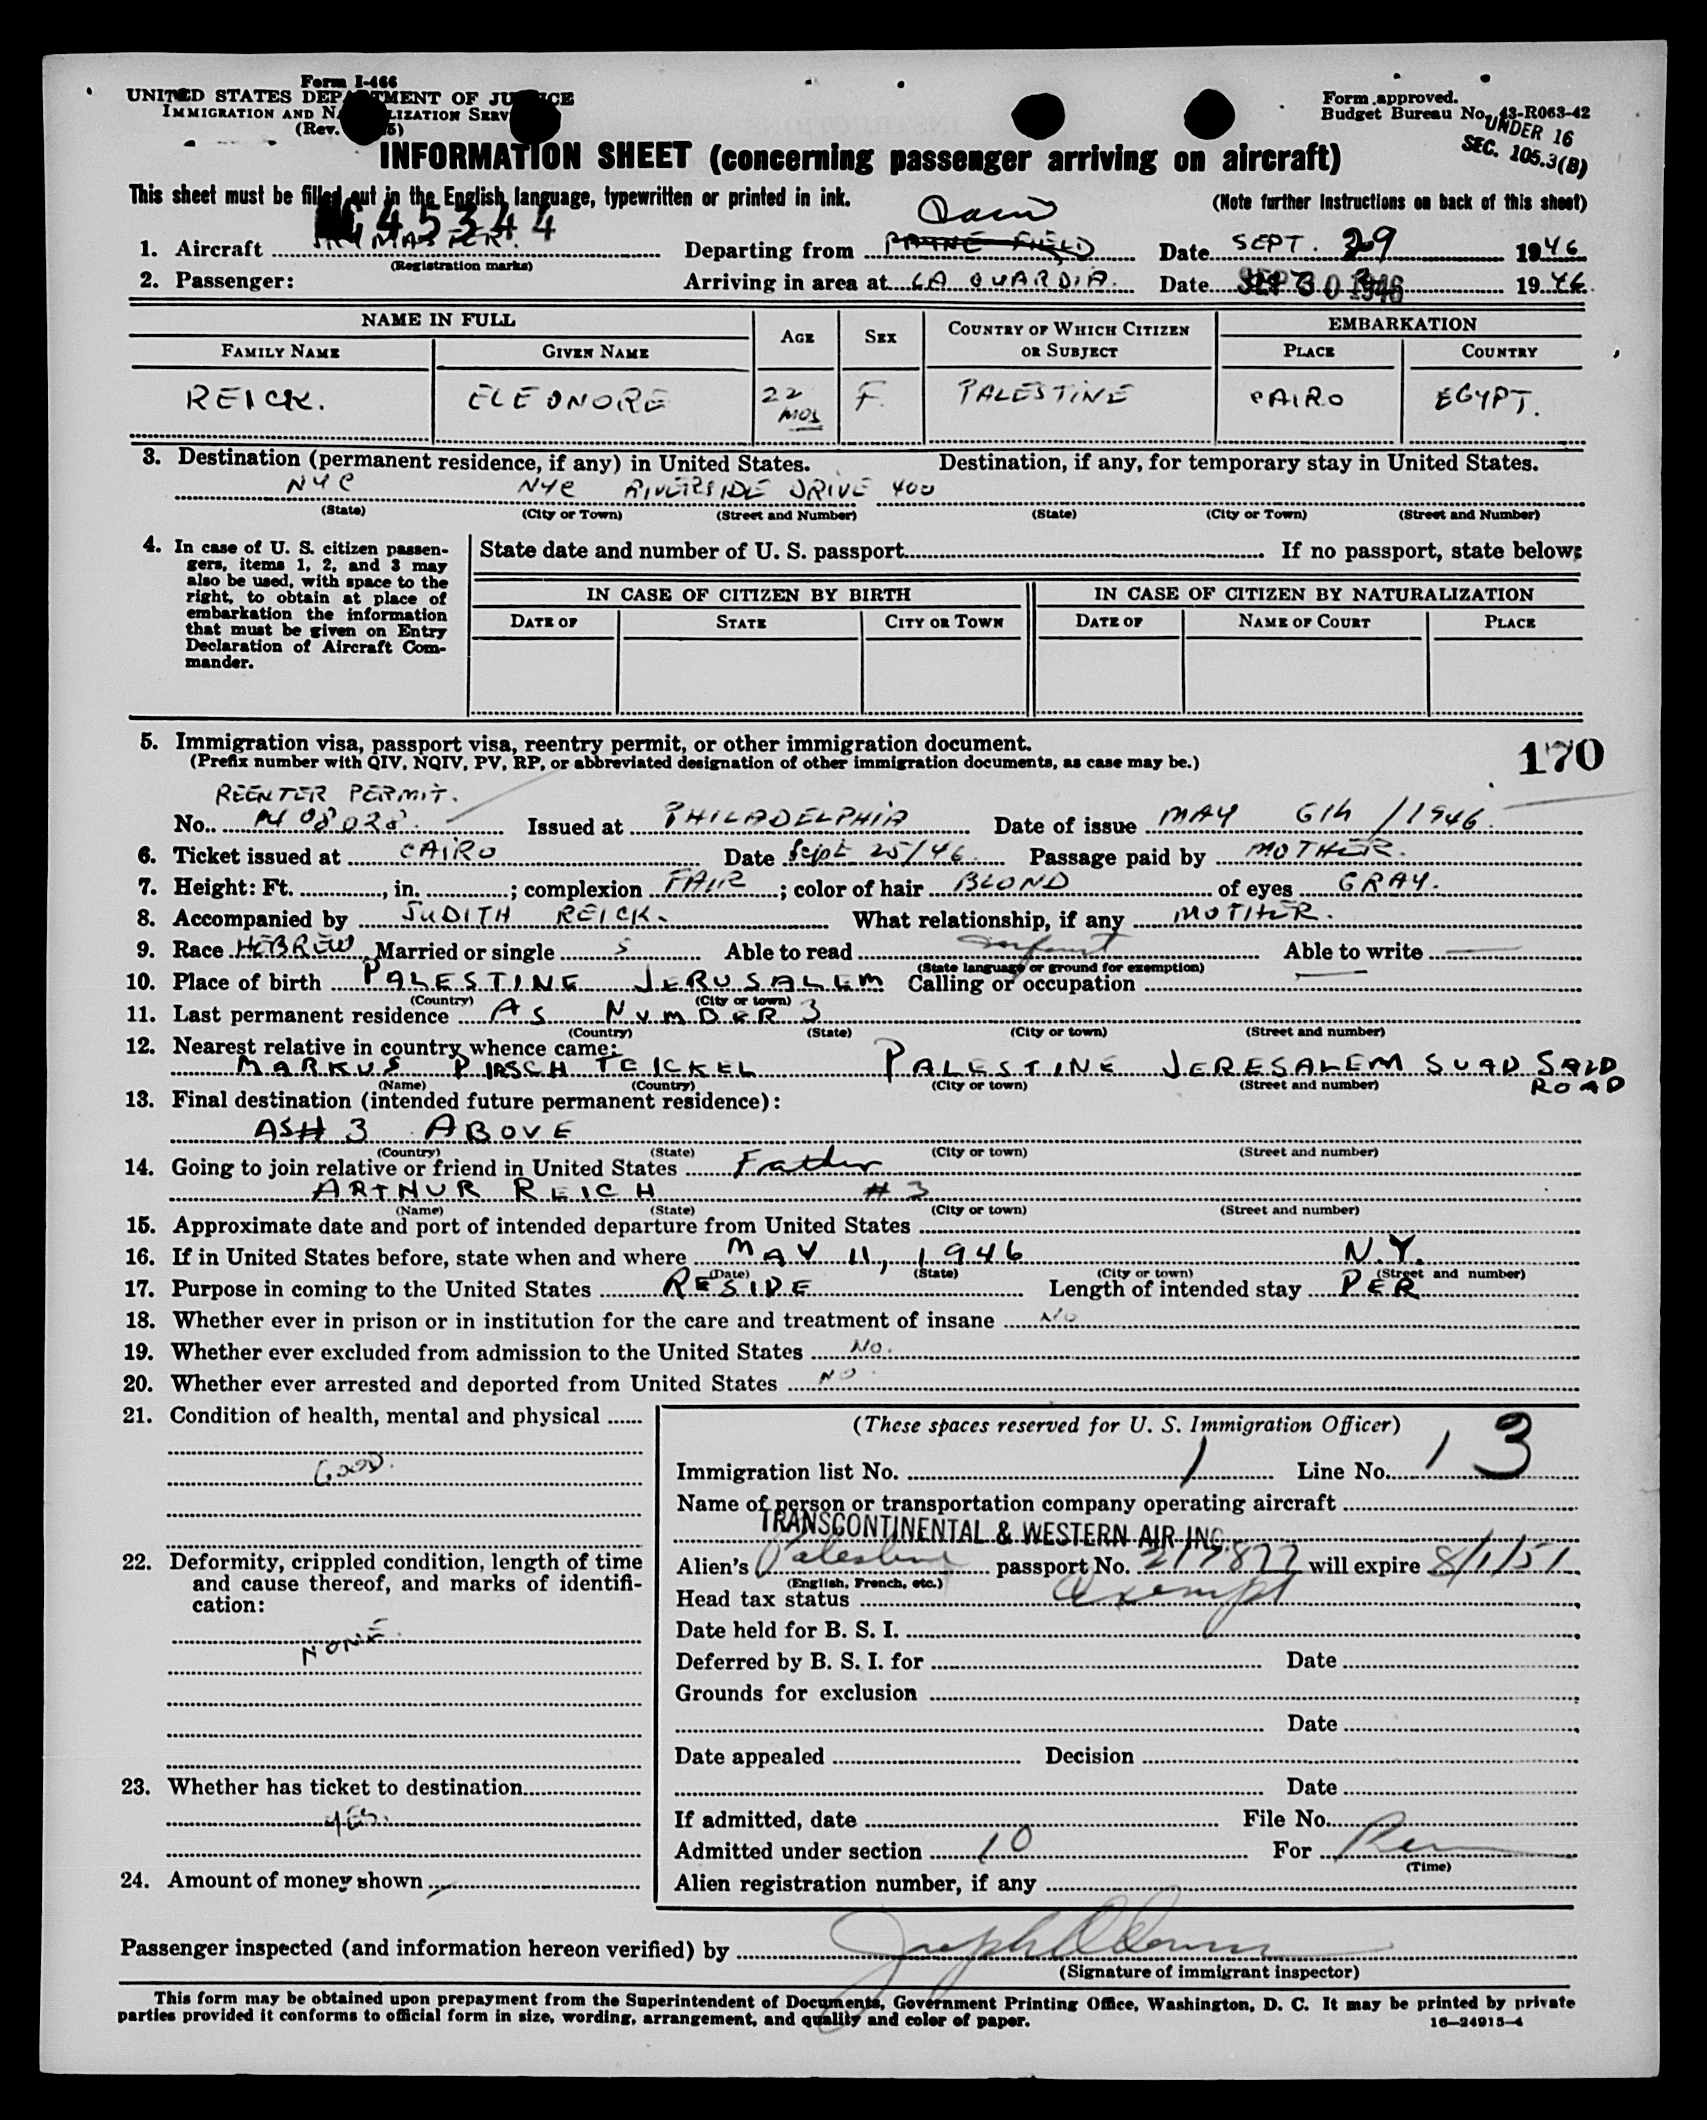 Form I-466
UNITED STATES DEPARTMENT OF JUSTICE
IMMIGRATION AND NATURALIZATION SERV
(Rev. 5)
Form approved.
Budget Bureau No. 43-R063-42
UNDER 16
SEC. 105.3(B)
INFORMATION SHEET (concerning passenger arriving on aircraft)
This sheet must be filled out in the English language, typewritten or printed in ink. (Note further instructions on back of this sheet)
45344
1. Aircraft SKYMASTER. Departing from PAYNE FIELD Date SEPT. 29 1946
(Registration marks)
2. Passenger: Arriving in area at LA GUARDIA. Date SEP 30 1946 1946.
NAME IN FULL AGE SEX COUNTRY OF WHICH CITIZEN OR SUBJECT EMBARKATION
FAMILY NAME GIVEN NAME PLACE COUNTRY
REICK. ELEONORE 22 MOS F. PALESTINE CAIRO EGYPT.
3. Destination (permanent residence, if any) in United States. Destination, if any, for temporary stay in United States.
NYC NYC RIVERSIDE DRIVE 400
(State) (City or Town) (Street and Number) (State) (City or Town) (Street and Number)
4. In case of U. S. citizen passen-
gers, items 1, 2, and 3 may
also be used, with space to the
right, to obtain at place of
embarkation the information
that must be given on Entry
Declaration of Aircraft Com-
mander.
State date and number of U. S. passport If no passport, state below:
IN CASE OF CITIZEN BY BIRTH IN CASE OF CITIZEN BY NATURALIZATION
DATE OF STATE CITY OR TOWN DATE OF NAME OF COURT PLACE
5. Immigration visa, passport visa, reentry permit, or other immigration document.
(Prefix number with QIV, NQIV, PV, RP, or abbreviated designation of other immigration documents, as case may be.)
170
REENTER PERMIT.
No. M 08028. Issued at PHILADELPHIA Date of issue MAY 6th /1946.
6. Ticket issued at CAIRO Date Sept 25/46. Passage paid by MOTHER.
7. Height: Ft. , in. ; complexion FAIR ; color of hair BLOND of eyes GRAY.
8. Accompanied by JUDITH REICK. What relationship, if any MOTHER.
9. Race HEBREW Married or single S Able to read infant Able to write —
(State language or ground for exemption)
10. Place of birth PALESTINE JERUSALEM Calling or occupation —
(Country) (City or town)
11. Last permanent residence AS NUMBER 3
(Country) (State) (City or town) (Street and number)
12. Nearest relative in country whence came:
MARKUS PIRSCH TEICKEL PALESTINE JERESALEM SUAD SALD ROAD
(Name) (Country) (City or town) (Street and number)
13. Final destination (intended future permanent residence):
AS # 3 ABOVE
(Country) (State) (City or town) (Street and number)
14. Going to join relative or friend in United States Father
ARTHUR REICH # 3
(Name) (State) (City or town) (Street and number)
15. Approximate date and port of intended departure from United States
16. If in United States before, state when and where MAY 11, 1946 N.Y.
(Date) (State) (City or town) (Street and number)
17. Purpose in coming to the United States RESIDE Length of intended stay PER
18. Whether ever in prison or in institution for the care and treatment of insane NO
19. Whether ever excluded from admission to the United States NO.
20. Whether ever arrested and deported from United States NO
21. Condition of health, mental and physical
GOOD.
22. Deformity, crippled condition, length of time
and cause thereof, and marks of identifi-
cation:
NONE.
23. Whether has ticket to destination
YES.
24. Amount of money shown
(These spaces reserved for U. S. Immigration Officer)
Immigration list No. 1 Line No. 13
Name of person or transportation company operating aircraft
TRANSCONTINENTAL & WESTERN AIR INC.
Alien's Palestine passport No. 217877 will expire 8/1/51
(English, French, etc.)
Head tax status exempt
Date held for B. S. I.
Deferred by B. S. I. for Date
Grounds for exclusion
Date
Date appealed Decision
Date
If admitted, date File No.
Admitted under section 10 For Perm
(Time)
Alien registration number, if any
Passenger inspected (and information hereon verified) by
(Signature of immigrant inspector)
This form may be obtained upon prepayment from the Superintendent of Documents, Government Printing Office, Washington, D. C. It may be printed by private
parties provided it conforms to official form in size, wording, arrangement, and quality and color of paper.
16—24915-4